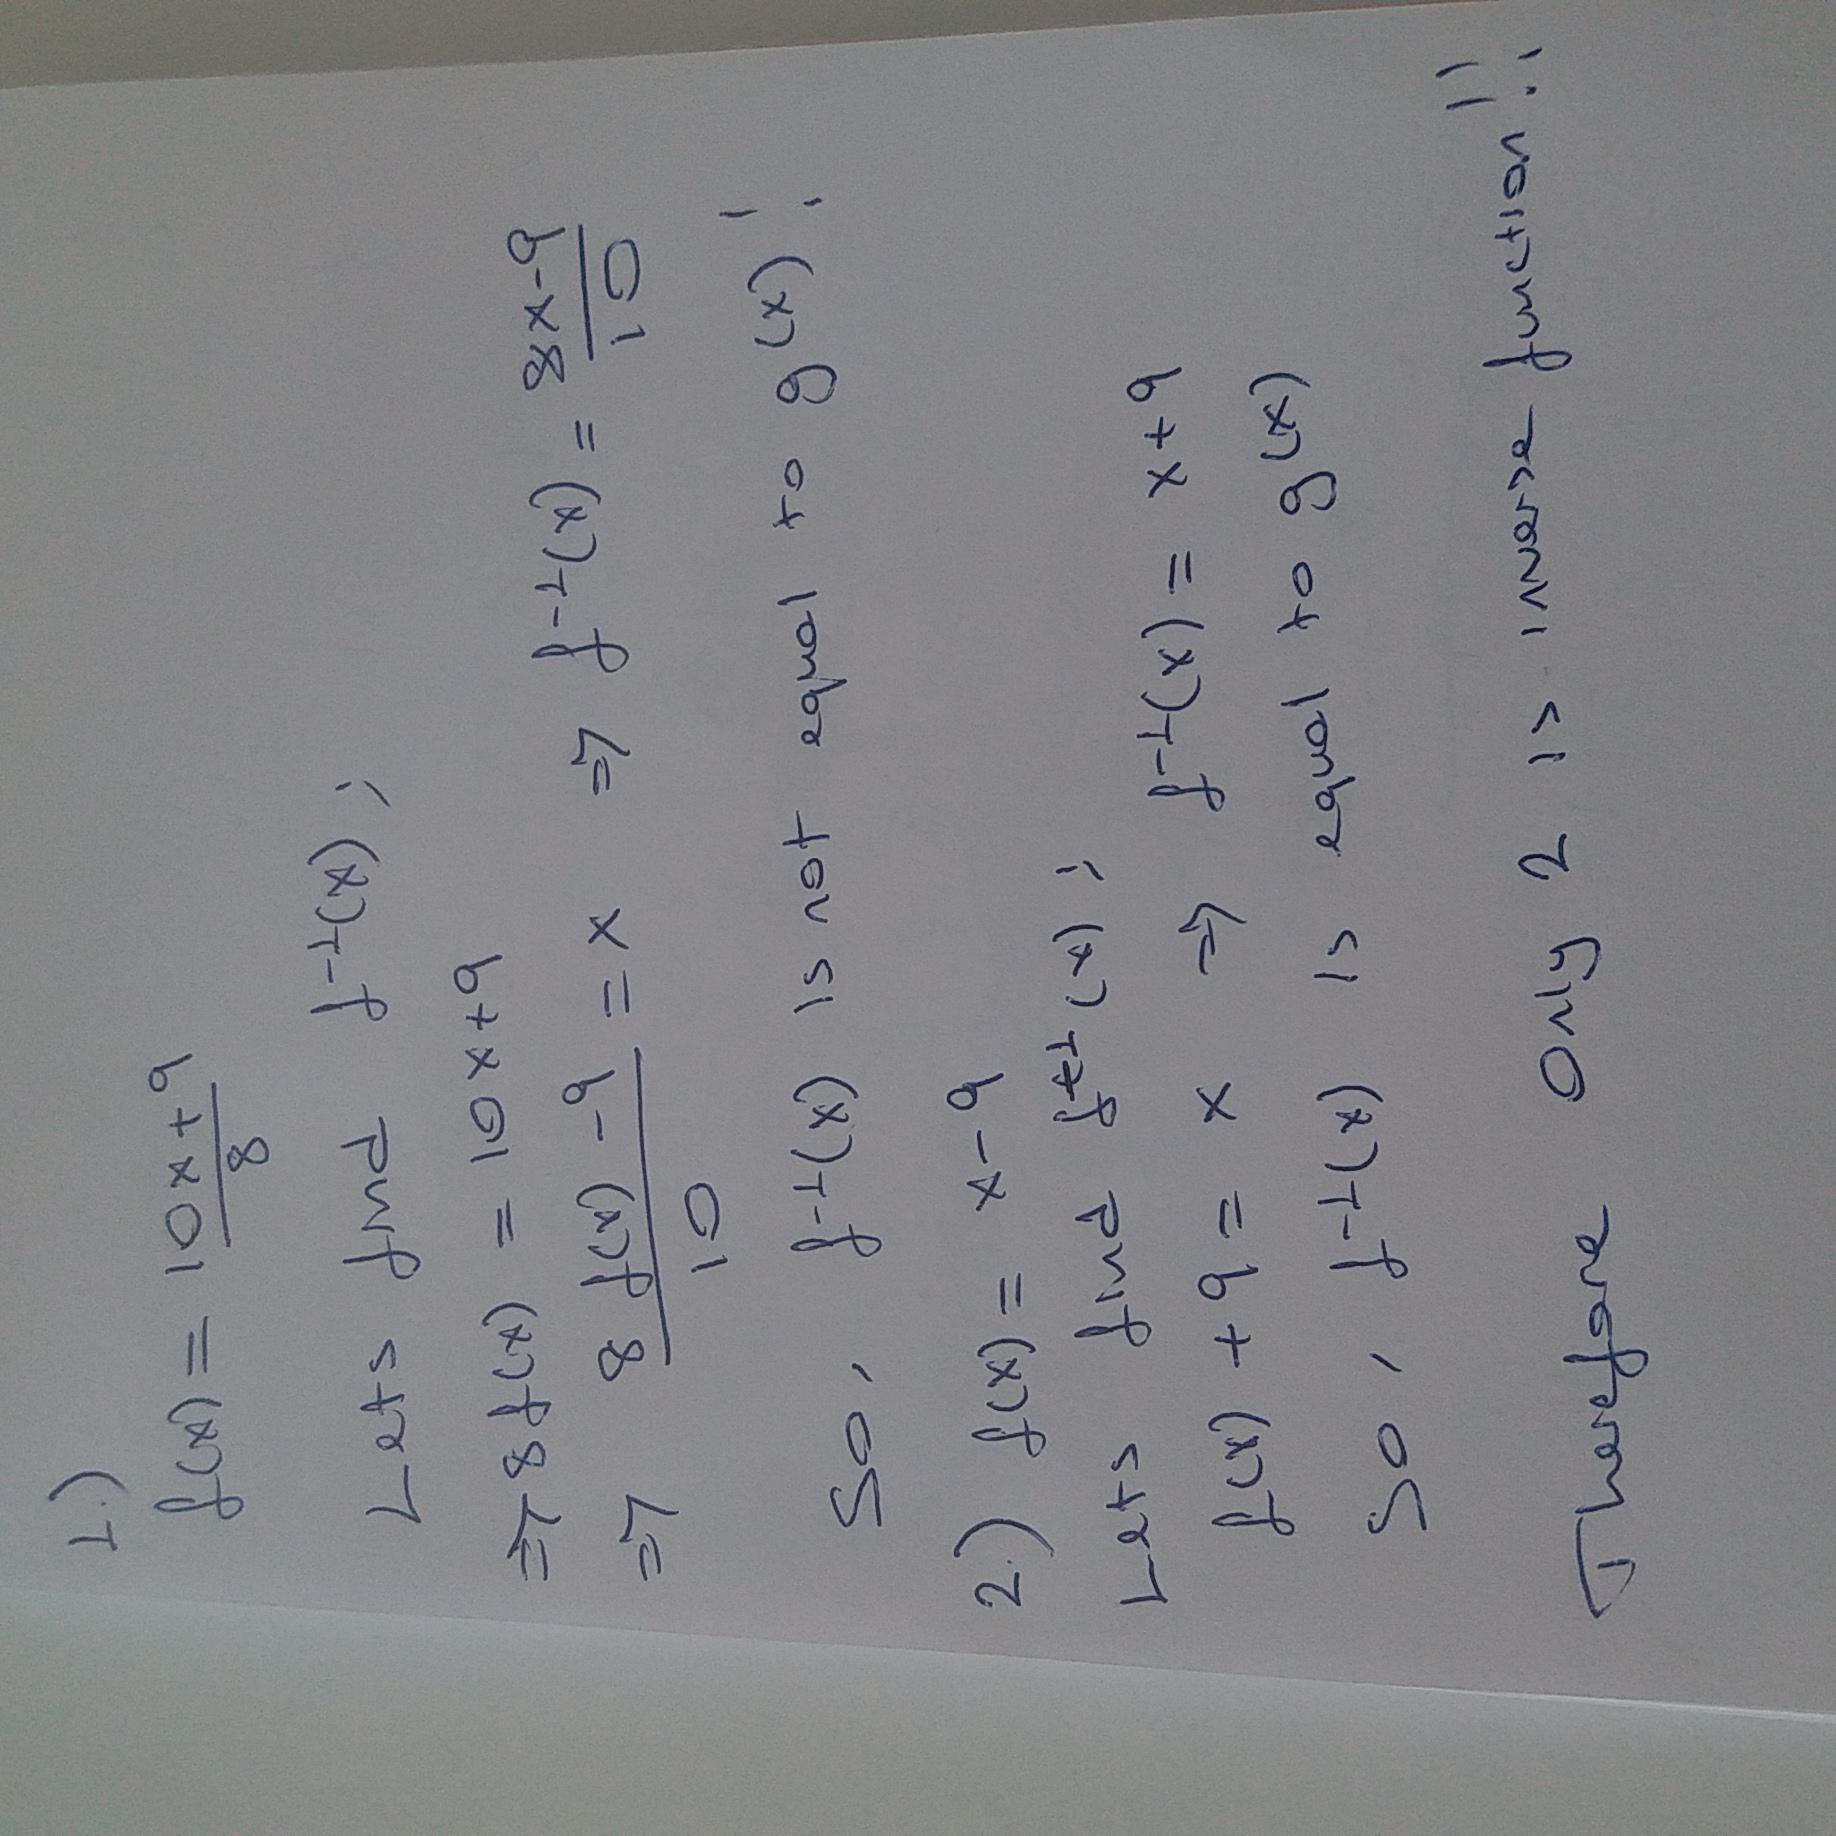 1.)
f(x) = 10x+9/8
Lets find f⁻¹(x);
⇒ 8f(x) = 10x+9
⇒ 8f(x) - 9/10 = x ⇒ f⁻¹(x) = 8x-9/10
So, f⁻¹(x) is not equal to g(x)!
2.) f(x) = x-9
Lets find f⁻¹(x);
f(x) + 9 = x ⇒ f⁻¹(x) = x+9
So, f⁻¹(x) is equal to g(x)
Therefore Only 2 is inverse function!!